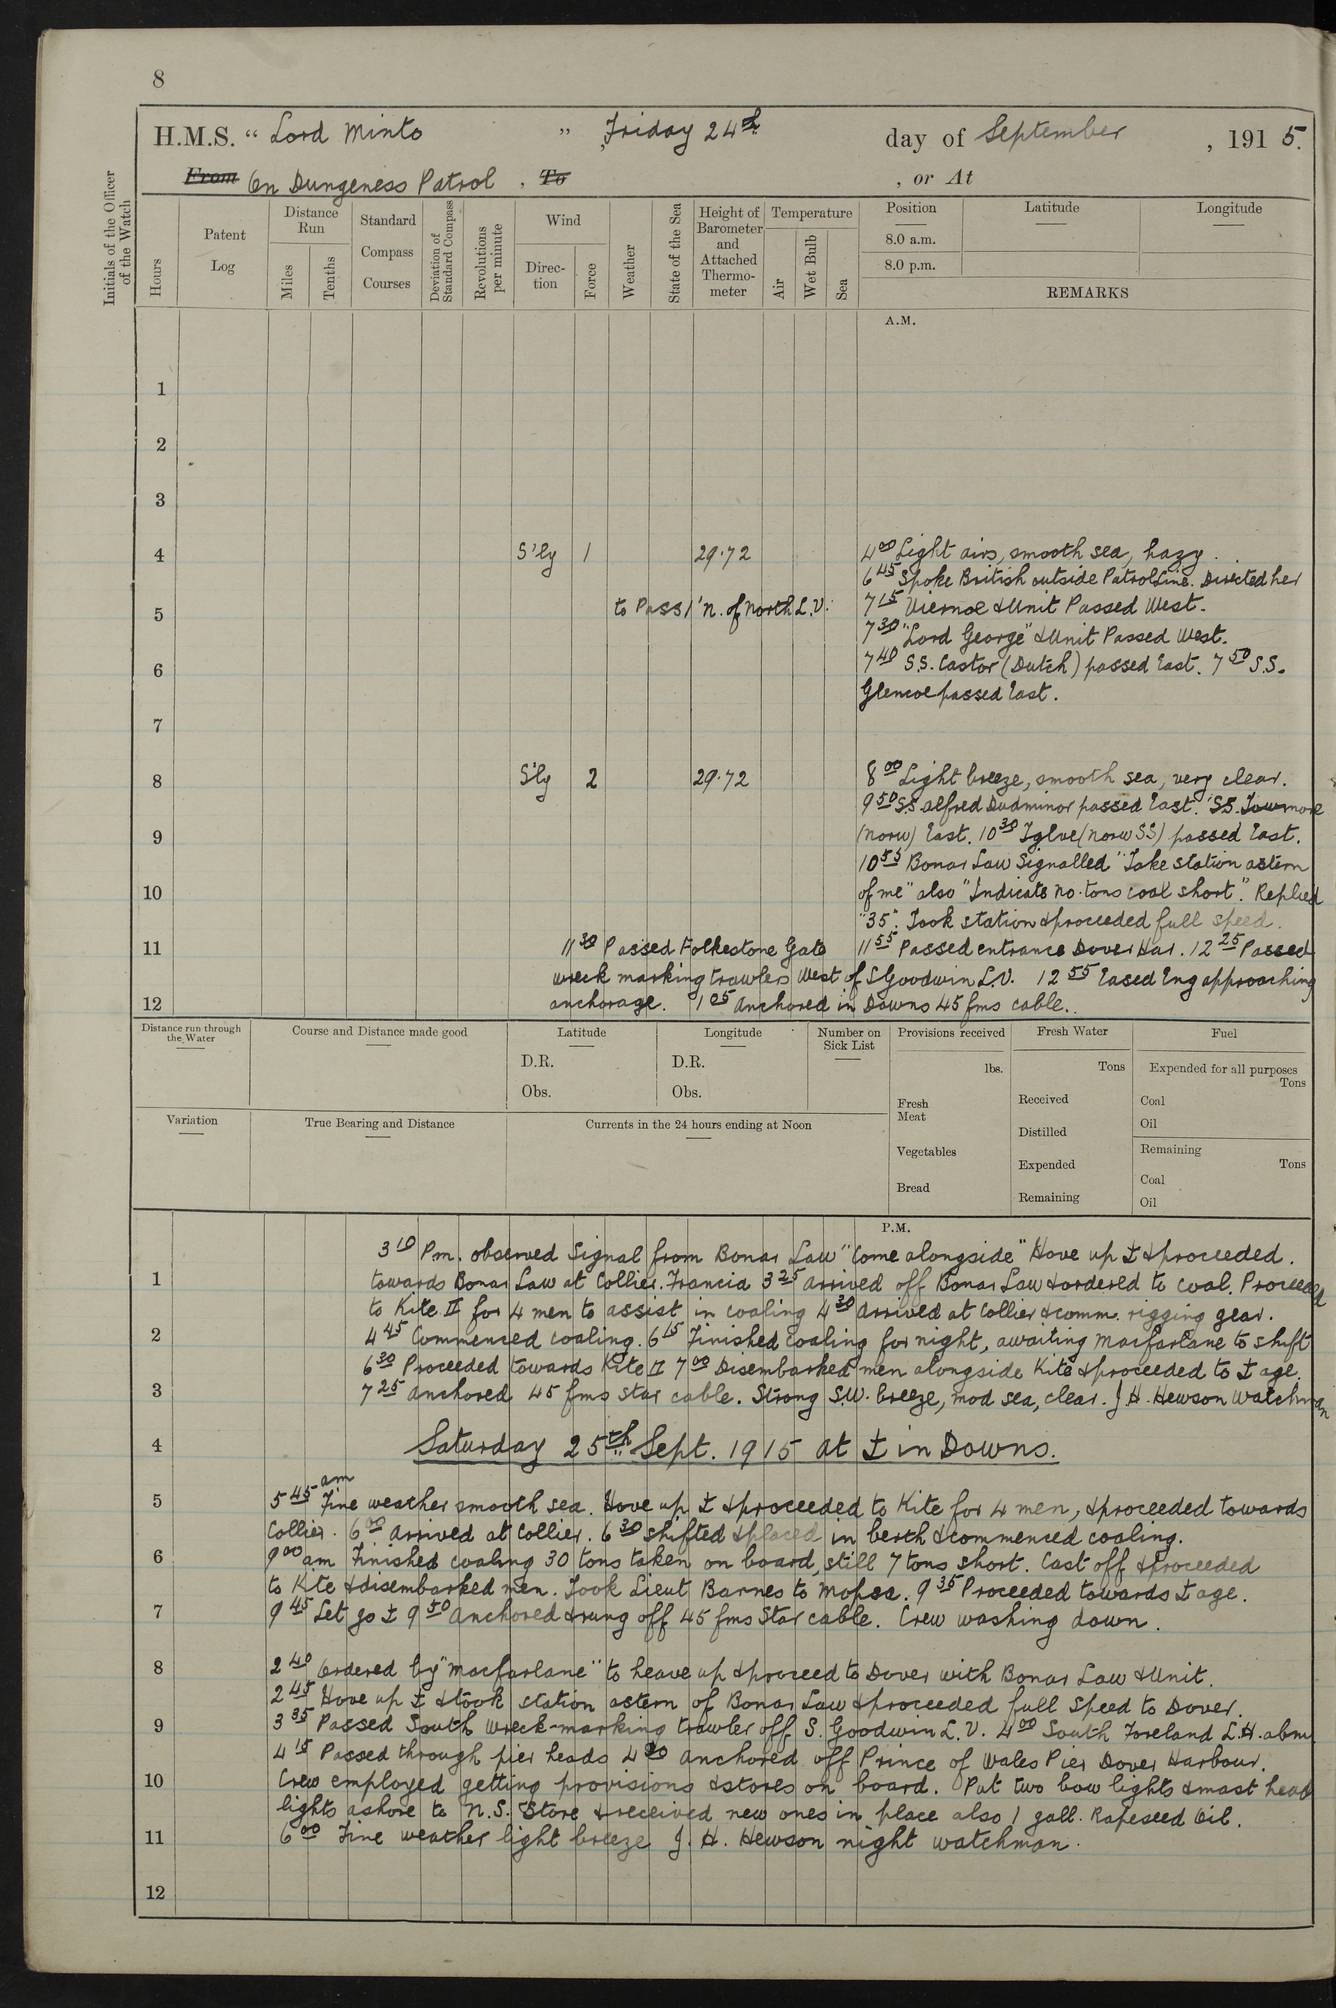 8
H.M.S. “ Lord Minto ” , Friday 24th day of September , 1915.
From On Dungeness Patrol , To , or At
Initials of the Officer of the Watch
Hours
Patent Log
Distance Run
Miles
Tenths
Standard Compass Courses
Deviation of Standard Compass
Revolutions per minute
Wind
Direction
Force
Weather
State of the Sea
Height of Barometer and Attached Thermometer
Temperature
Air
Wet Bulb
Sea
Position
8.0 a.m.
8.0 p.m.
Latitude
Longitude
REMARKS
A.M.
1
2
3
4 S'ly 1 29.72 4 00 Light airs, smooth sea, hazy.
6 45 Spoke British outside Patrol Line. Directed her
5 to Pass 1' N. of North L.V. 7 15 Viernoe & Unit Passed West.
7 30 "Lord George" & Unit Passed West.
6 7 40 S.S. Castor (Dutch) passed East. 7 50 S.S.
Glencoe passed East.
7
8 S'ly 2 29.72 8 00 Light breeze, smooth sea, very clear.
9 50 S.S. Alfred Dudminor passed East. S.S.
9 (Norw) East. 10 30 Iglve (Norw SS) passed East.
10 55 Bonar Law Signalled "Take station astern
10 of me" also "Indicate no. tons coal short". Replied
"35". Took station & proceeded full speed.
11 11 30 Passed Folkestone Gate 11 55 Passed entrance Dover Har. 12 25 Passed
wreck marking trawlers West of S Goodwin L.V. 12 55 Eased Eng approaching
12 anchorage. 1 05 Anchored in Downs 45 fms cable.
Distance run through the Water
Course and Distance made good
Latitude
D.R.
Obs.
Longitude
D.R.
Obs.
Number on Sick List
Provisions received
lbs.
Fresh Meat
Vegetables
Bread
Fresh Water
Tons
Received
Distilled
Expended
Remaining
Fuel
Expended for all purposes
Tons
Coal
Oil
Remaining
Tons
Coal
Oil
Variation
True Bearing and Distance
Currents in the 24 hours ending at Noon
P.M.
3 10 Pm. observed Signal from Bonar Law "Come alongside" Hove up ⚓ & proceeded.
1 towards Bonar Law at Collier. Francia 3 25 arrived off Bonar Law & ordered to coal. Proceeded
to Kite II for 4 men to assist in coaling 4 30 Arrived at Collier & comm. rigging gear.
2 4 45 Commenced coaling. 6 15 Finished coaling for night, awaiting Macfarlane to shift
6 30 Proceeded towards Kite II 7 00 Disembarked men alongside Kite & proceeded to ⚓age.
3 7 25 Anchored 45 fms star cable. Strong S.W. breeze, mod sea, clear. J.H. Hewson Watchman
4 Saturday 25th Sept. 1915 at ⚓ in Downs.
am
5 5 45 Fine weather smooth sea. Hove up ⚓ & proceeded to Kite for 4 men, & proceeded towards
Collier. 6 00 Arrived at Collier. 6 30 shifted & placed in berth & commenced coaling.
6 9 00 am Finished coaling 30 tons taken on board, still 7 tons short. Cast off & proceeded
to Kite & disembarked men. Took Lieut Barnes to Mopsa. 9 35 Proceeded towards ⚓age.
7 9 45 Let go ⚓ 9 50 Anchored & rung off 45 fms Star cable. Crew washing down.
8 2 40 Ordered by "Macfarlane" to heave up & proceed to Dover with Bonar Law & Unit.
2 45 Hove up ⚓ & took station astern of Bonar Law & proceeded full Speed to Dover.
9 3 35 Passed South Wreck-marking trawler off S. Goodwin L.V. 4 00 South Foreland L.H. abm
4 15 Passed through pier heads 4 20 anchored off Prince of Wales Pier Dover Harbour.
10 Crew employed getting provisions & stores on board. Put two bow lights & mast head
lights ashore to N.S. Store & received new ones in place also 1 gall. Rapeseed Oil.
11 6 00 Fine weather light breeze J. H. Hewson night watchman.
12